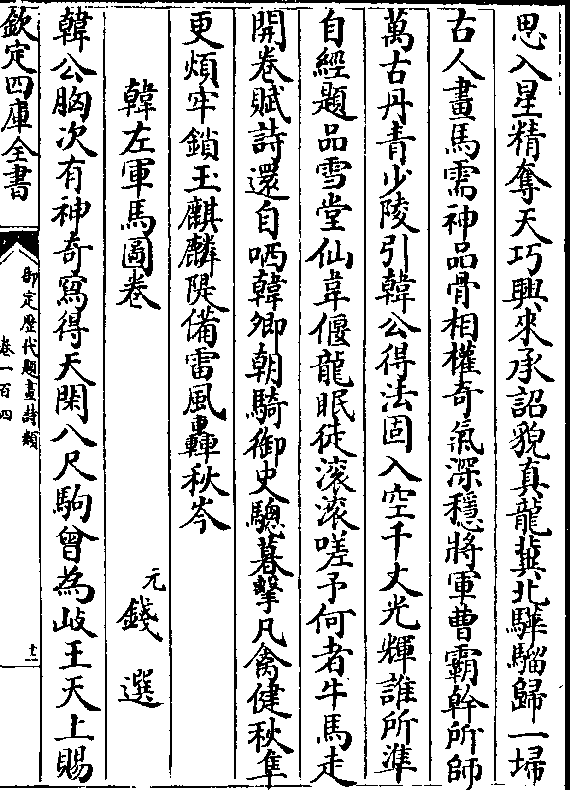 思入星精奪天巧興來承詔貌真龍冀北驊騮歸一埽
古人畫馬需神品骨相權奇氣深穩將軍曹霸幹所師
萬古丹青少陵引韓公得法固入空千丈光輝誰所準
自經題品雪堂仙韋偃龍眠徒滚滚嗟予何者牛馬走
開卷賦詩還自哂韓卿朝騎御史驄暮擊凡禽健秋隼
更煩牢鎖玉麒麟隄備雷風轟秋岑
韓左軍馬圖卷
元 錢選
韓公胸次有神奇寫得天閑八尺駒曾為岐王天上賜
欽定四庫全書
御定歷代題畫詩類
卷一百四
十二